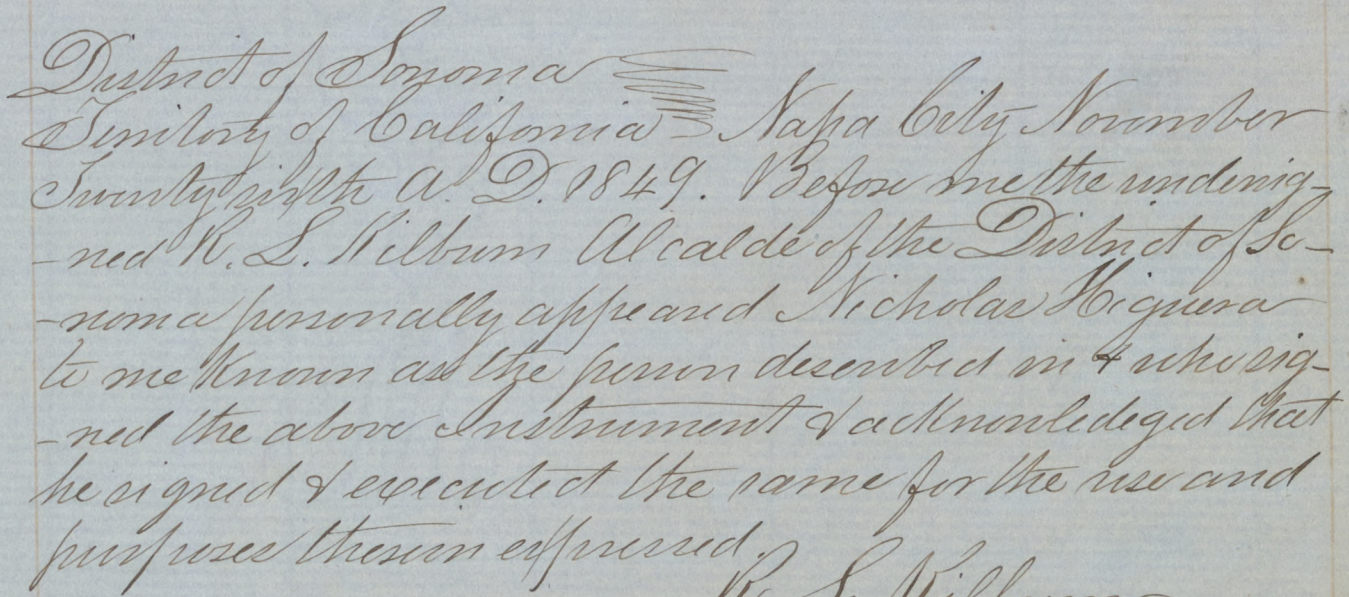 District of Sonoma
Territory of California Napa City November
Twenty sixth A. D. 1849. Before me the undersig-
-ned R. L. Kilburn Alcalde of the District of So-
-noma personally appeared Nicholas Higuera
to me known as the person described in & who sig-
-ned the above Instrument & acknowledeged that
he signed & executed the same for the use and
purposes therein expressed.
R. L. Kilburn